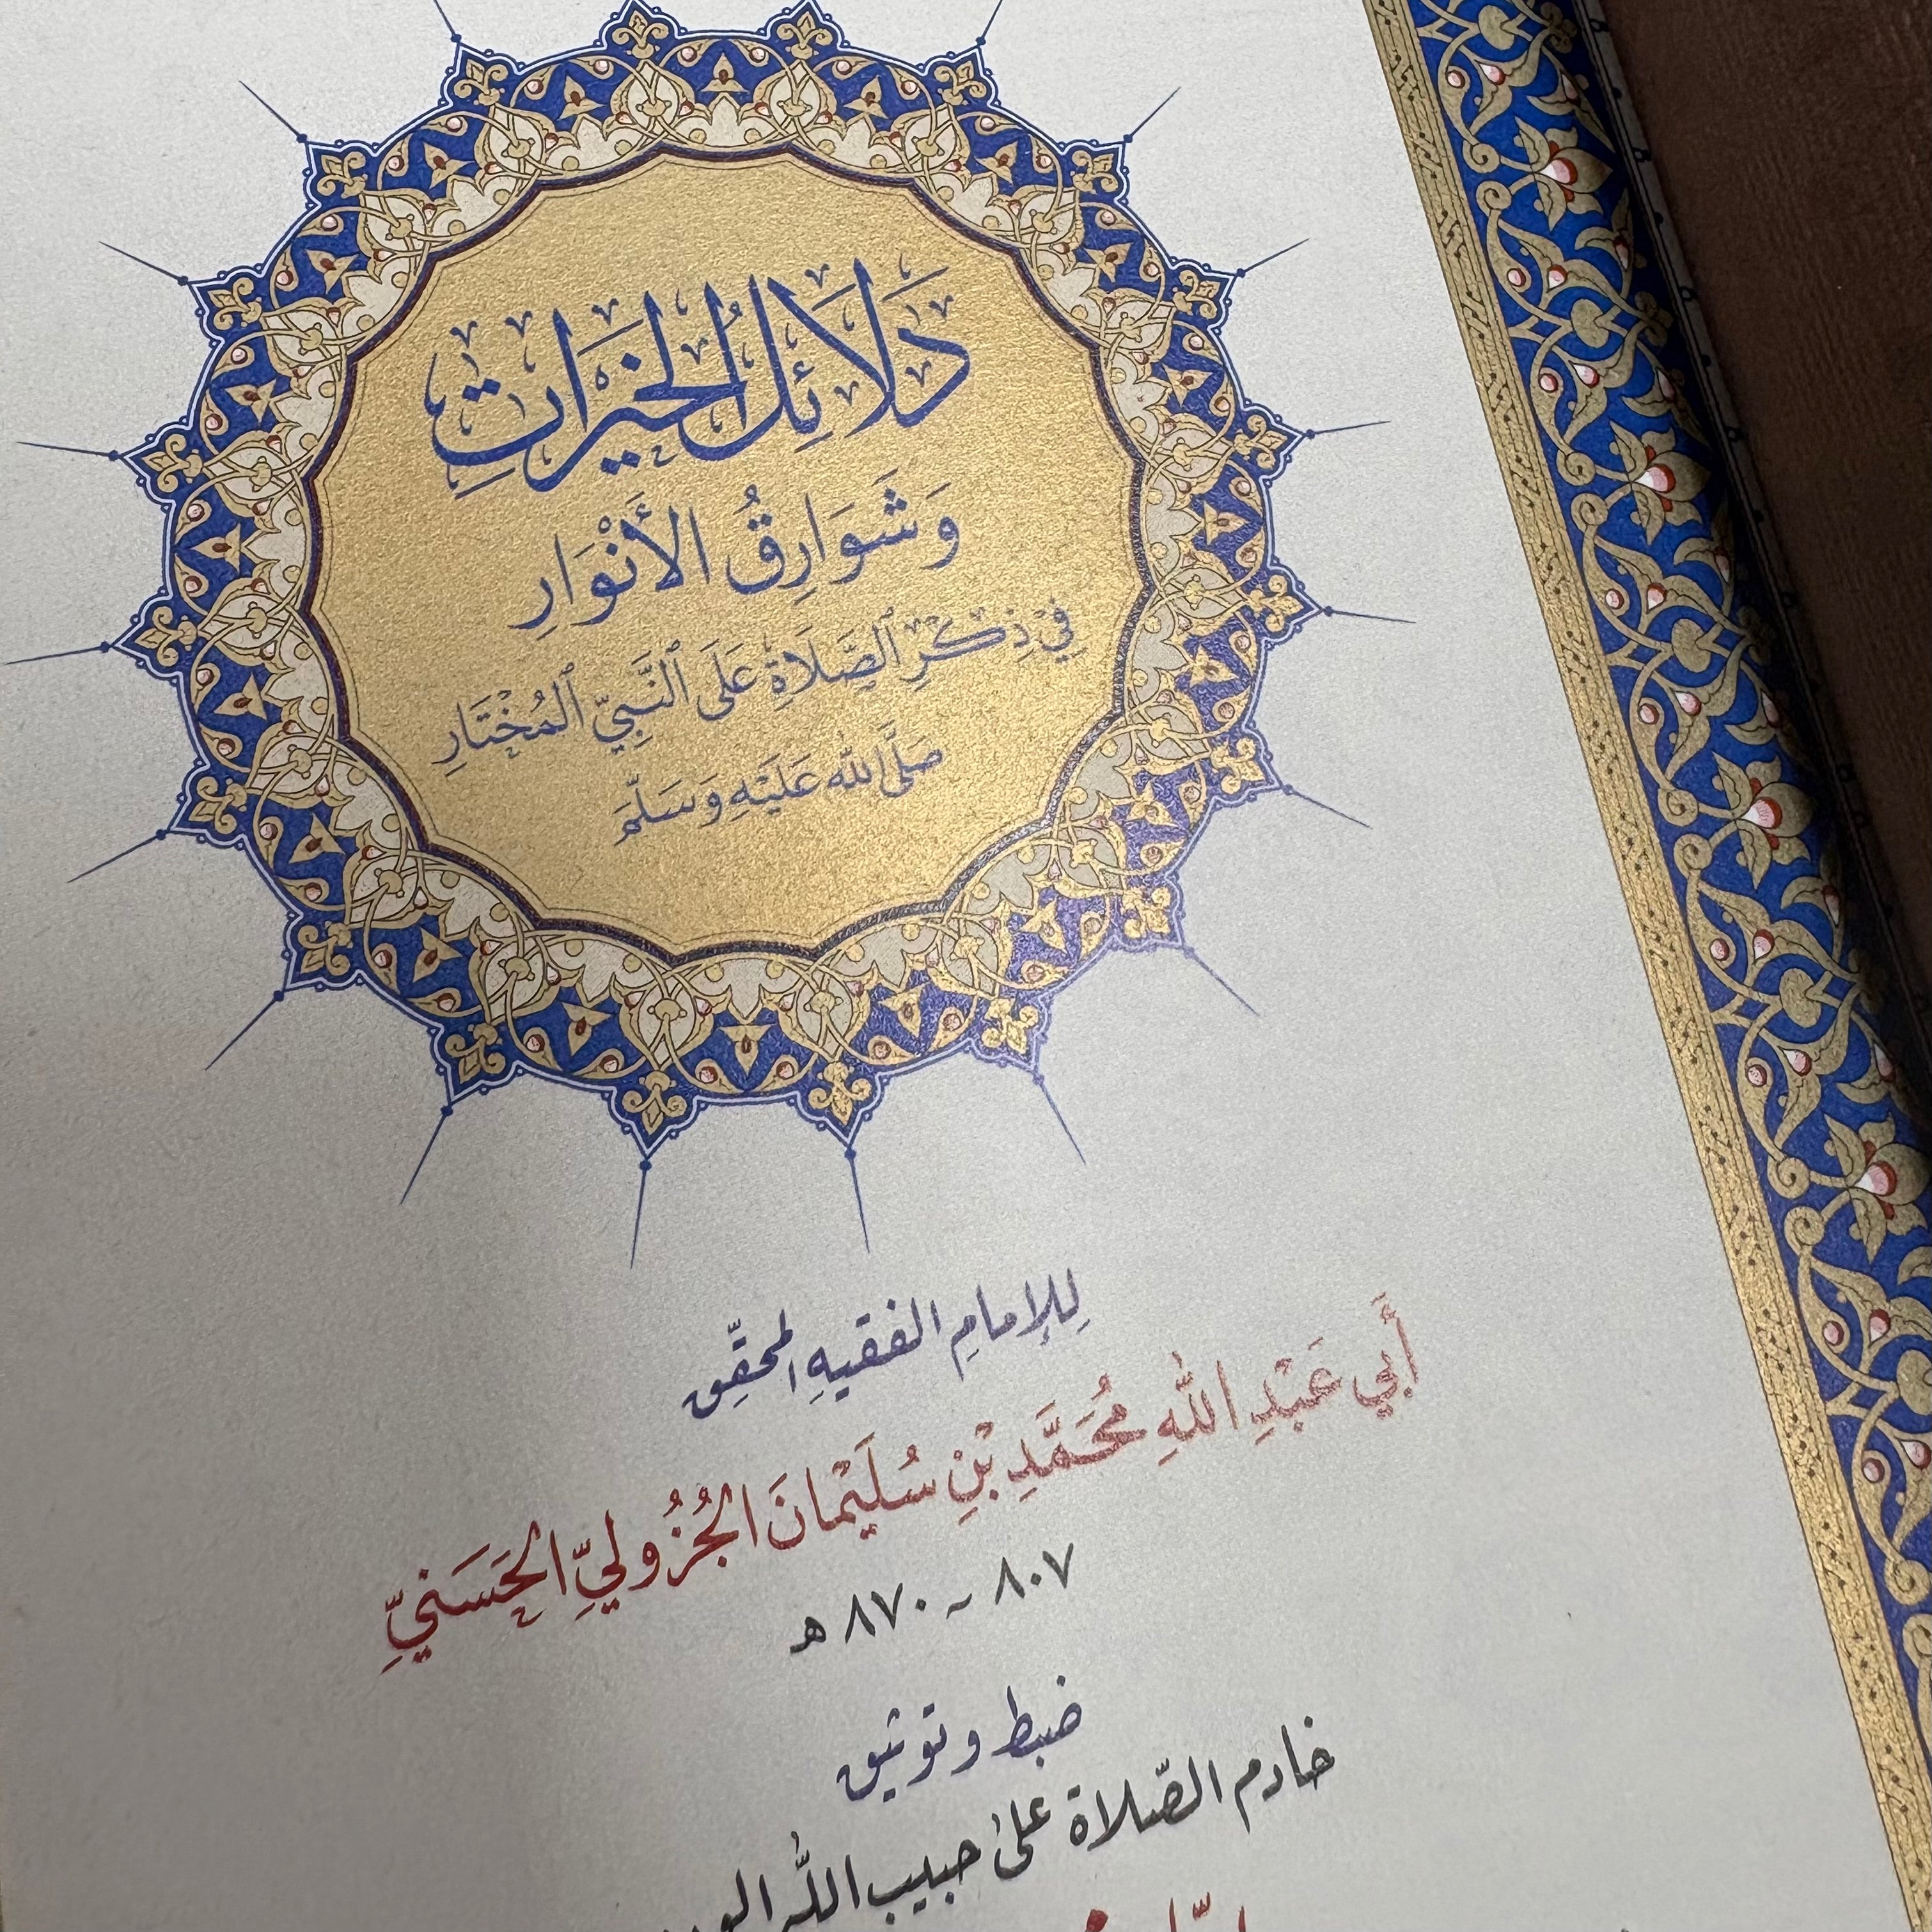 دَلَائِلُ الْخَيْرَاتِ
وَشَوَارِقُ الأَنْوَارِ
فِي ذِكْرِ ٱلصَّلَاةِ عَلَى ٱلنَّبِيِّ ٱلمُخْتَارِ
صَلَّى اللّٰه عَلَيْهِ وَسَلَّمَ
لِلإمامِ الفقيهِ المحقِّق
أَبي عَبْدِ اللّٰهِ مُحَمَّدِ بْنِ سُلَيْمانَ الجُزُوليِّ الحَسَنيِّ
٨٠٧ - ٨٧٠ هـ
ضبط وتوثيق
خادم الصّلاة علىٰ حبيب اللّٰه